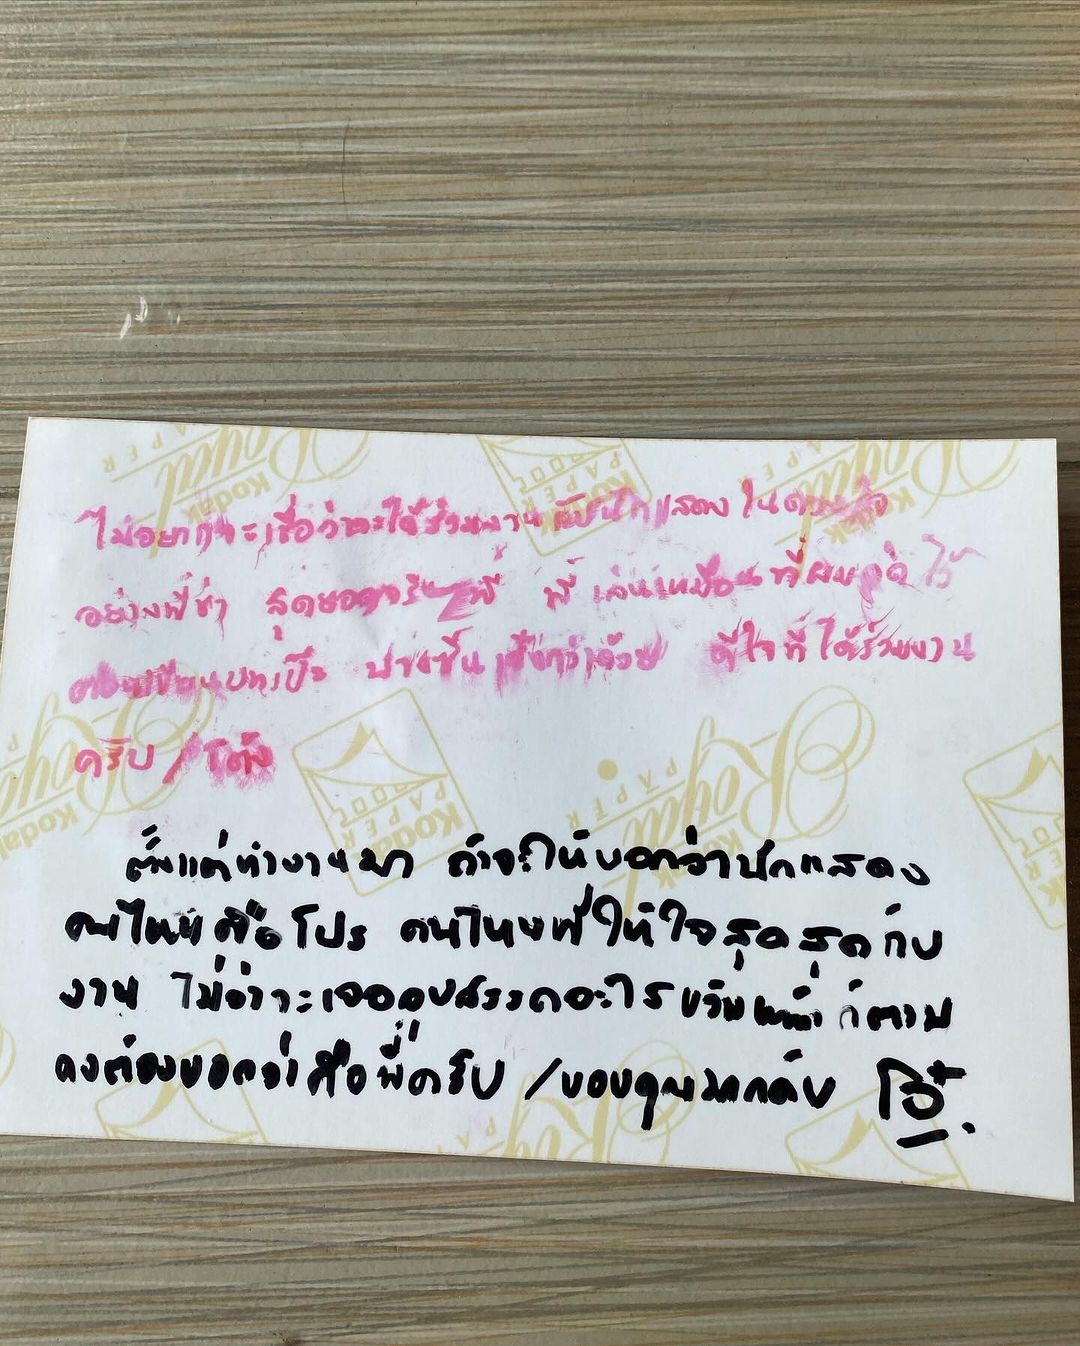 ไม่อยากจะเชื่อว่าจะได้ร่วมงานกับนักแสดงในดวงใจ
อย่างพี่ช่า สุดยอดจริงๆพี่ พี่เล่นเหมือนที่ผมคิดไว้
ตอนเขียนบทเป๊ะ บางซีนเชือกว่าด้วย ดีใจที่ได้ร่วมงาน
ครับ /
ตั้งแต่ทำงานมา ถ้าจะให้บอกว่านักแสดง
คนไหนคือโปร คนไหนที่ให้ใจสุดสุดกับ
งาน ไม่ว่าจะเจออุปสรรคอะไรขวางหน้าก็ตาม
คงต้องบอกว่าคือพี่ครับ /ขอบคุณมากครับ โอ๋
Kodak
Royal
PAPER